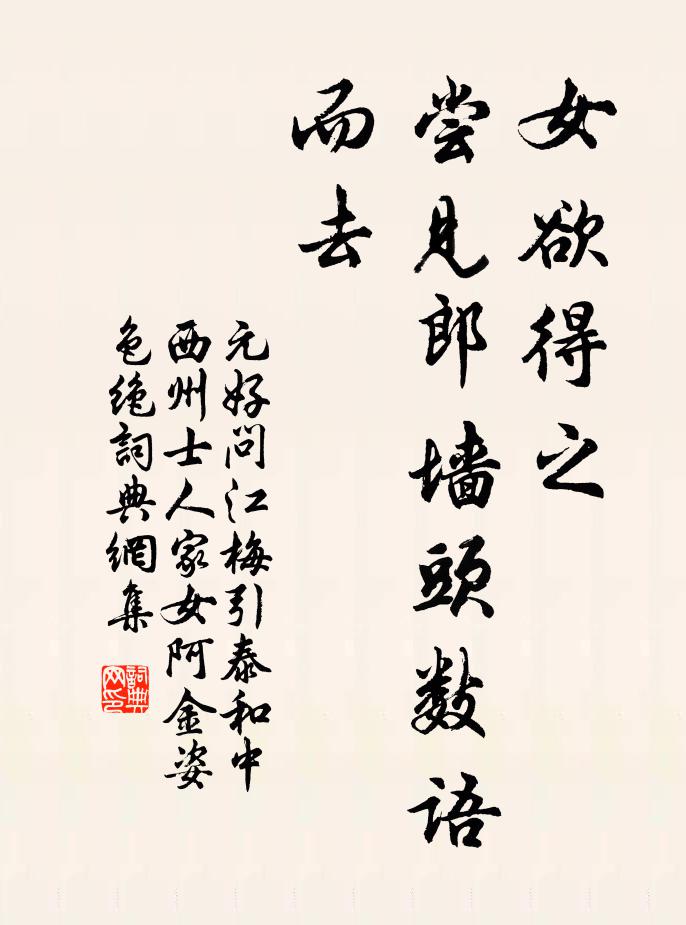 女欲得之
尝见郎墙頭数语
而去
元好问江梅引泰和中
西州士人家女阿金姿
色绝詞典網集
詞典
网印